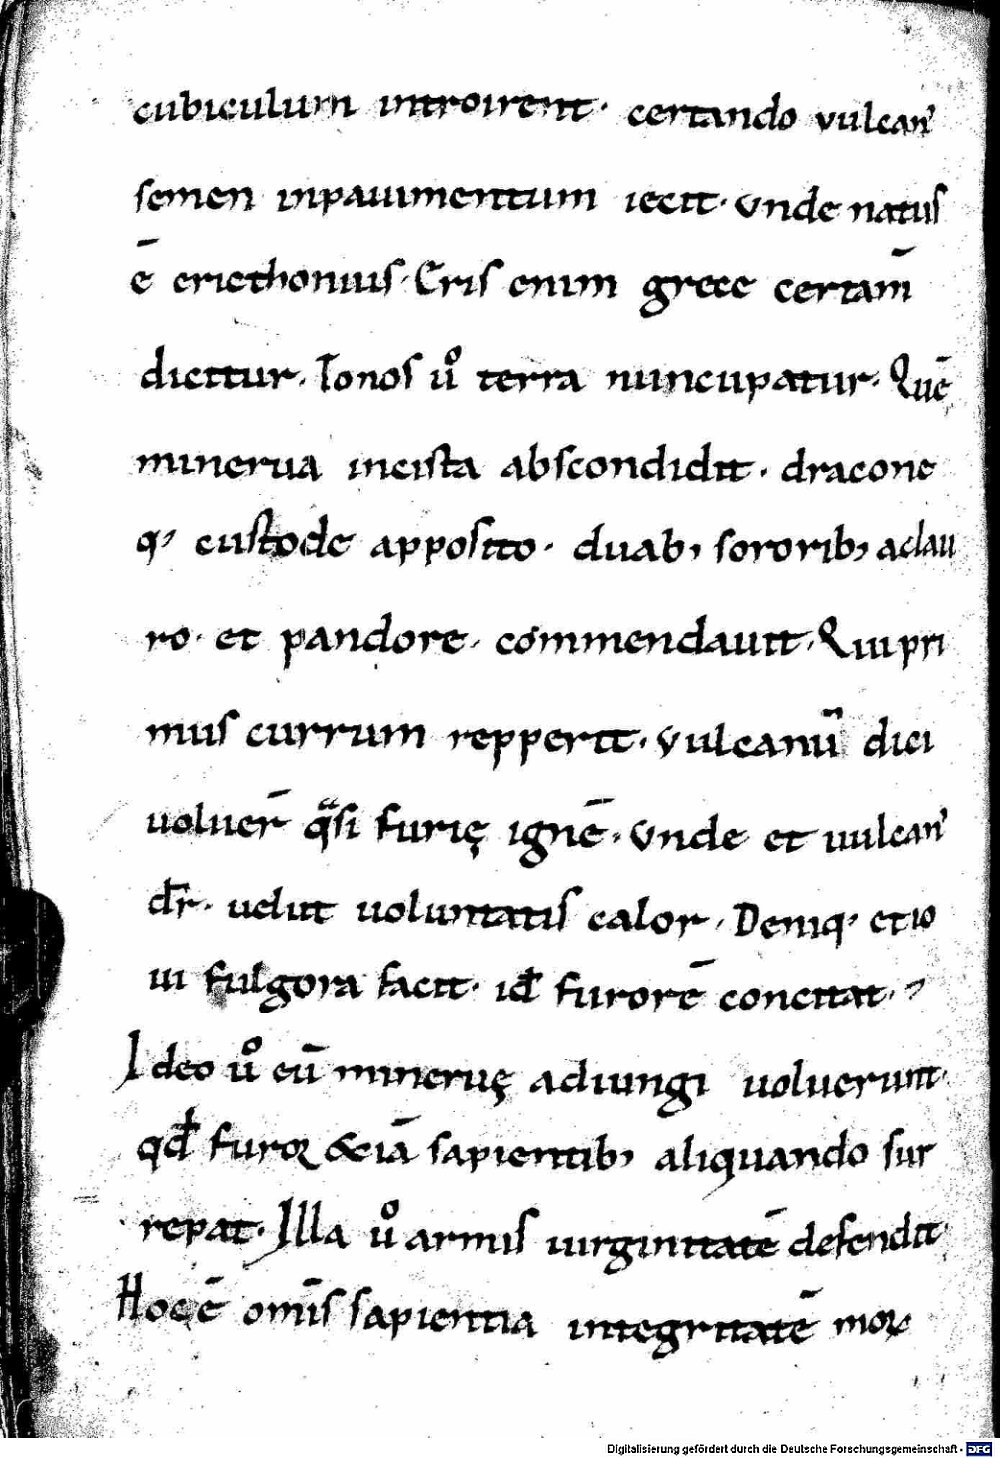 cubiculum introirent· certando vulcan᾽
semen inpauimentum iecit· vnde natus
ē ericthonius· Eris enim grece certam̄
dicitur· Tonos uͦ terra nuncupatur· Quē
minerua incista abscondidit· dracone
q᾽ custode apposito· duab᾽ sororib᾽ aclau
ro· et pandore· commendauit· Qui pri
mus currum repperit· vulcanū dici
uoluer̄ qͣsi furię ignē· vnde et uulcan᾽
dr̄· uelut voluntatis calor· Deniq᾽ et io
ui fulgora facit· id᷒ furorē concitat·
Ideo uͦ eū mineruę adiungi uoluerunt·
qđ furoꝝ &iā sapientib᾽ aliquando sur
repat· Illa uͦ armis uirginitatē defendit
Hoc ē om̄is sapientia integritatē moꝝ
Digitalisierung gefördert durch die Deutsche Forschungsgemeinschaft - DFG